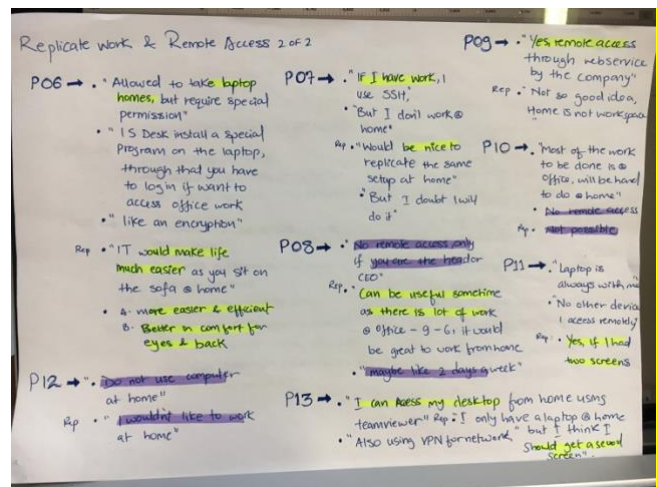 Replicate work & Remote Access 2 of 2
P06 → • "Allowed to take laptop
homes, but require special
permission"
• "IS Desk install a special
Program on the laptop,
through that you have
to login if want to
access office work
• "like an encryption"
Rep • "IT would make life
much easier as you sit on
the sofa @ home"
A. more easier & efficient
B. Better in comfort for
eyes & back
P12 → • "Do not use computer
at home"
Rep • "I wouldn't like to work
at home"
P07 → • "If I have work, I
use SSH,"
• "But I don't work @
home"
Rep • "Would be nice to
replicate the same
setup at home"
• "But I doubt I will
do it"
P08 → • "No remote access only
if you are the head or
CEO"
Rep • "Can be useful sometime
as there is lot of work
@ office - 9-6, it would
be great to work from home
• "maybe like 2 days a week"
P13 → • "I can access my desktop from home using
teamviewer" Rep • I only have a laptop @ home
• "Also using VPN for network" but I think I
should get a second
screen".
P09 → • "Yes remote access
through webservice
by the company"
Rep • Not so good idea,
Home is not workspace
P10 → • "Most of the work
to be done is @
office, will be hard
to do @ home"
• No remote access
Rep • Not possible
P11 → • "Laptop is
always with me
• "No other device
I access remotely"
Rep • Yes, if I had
two screens